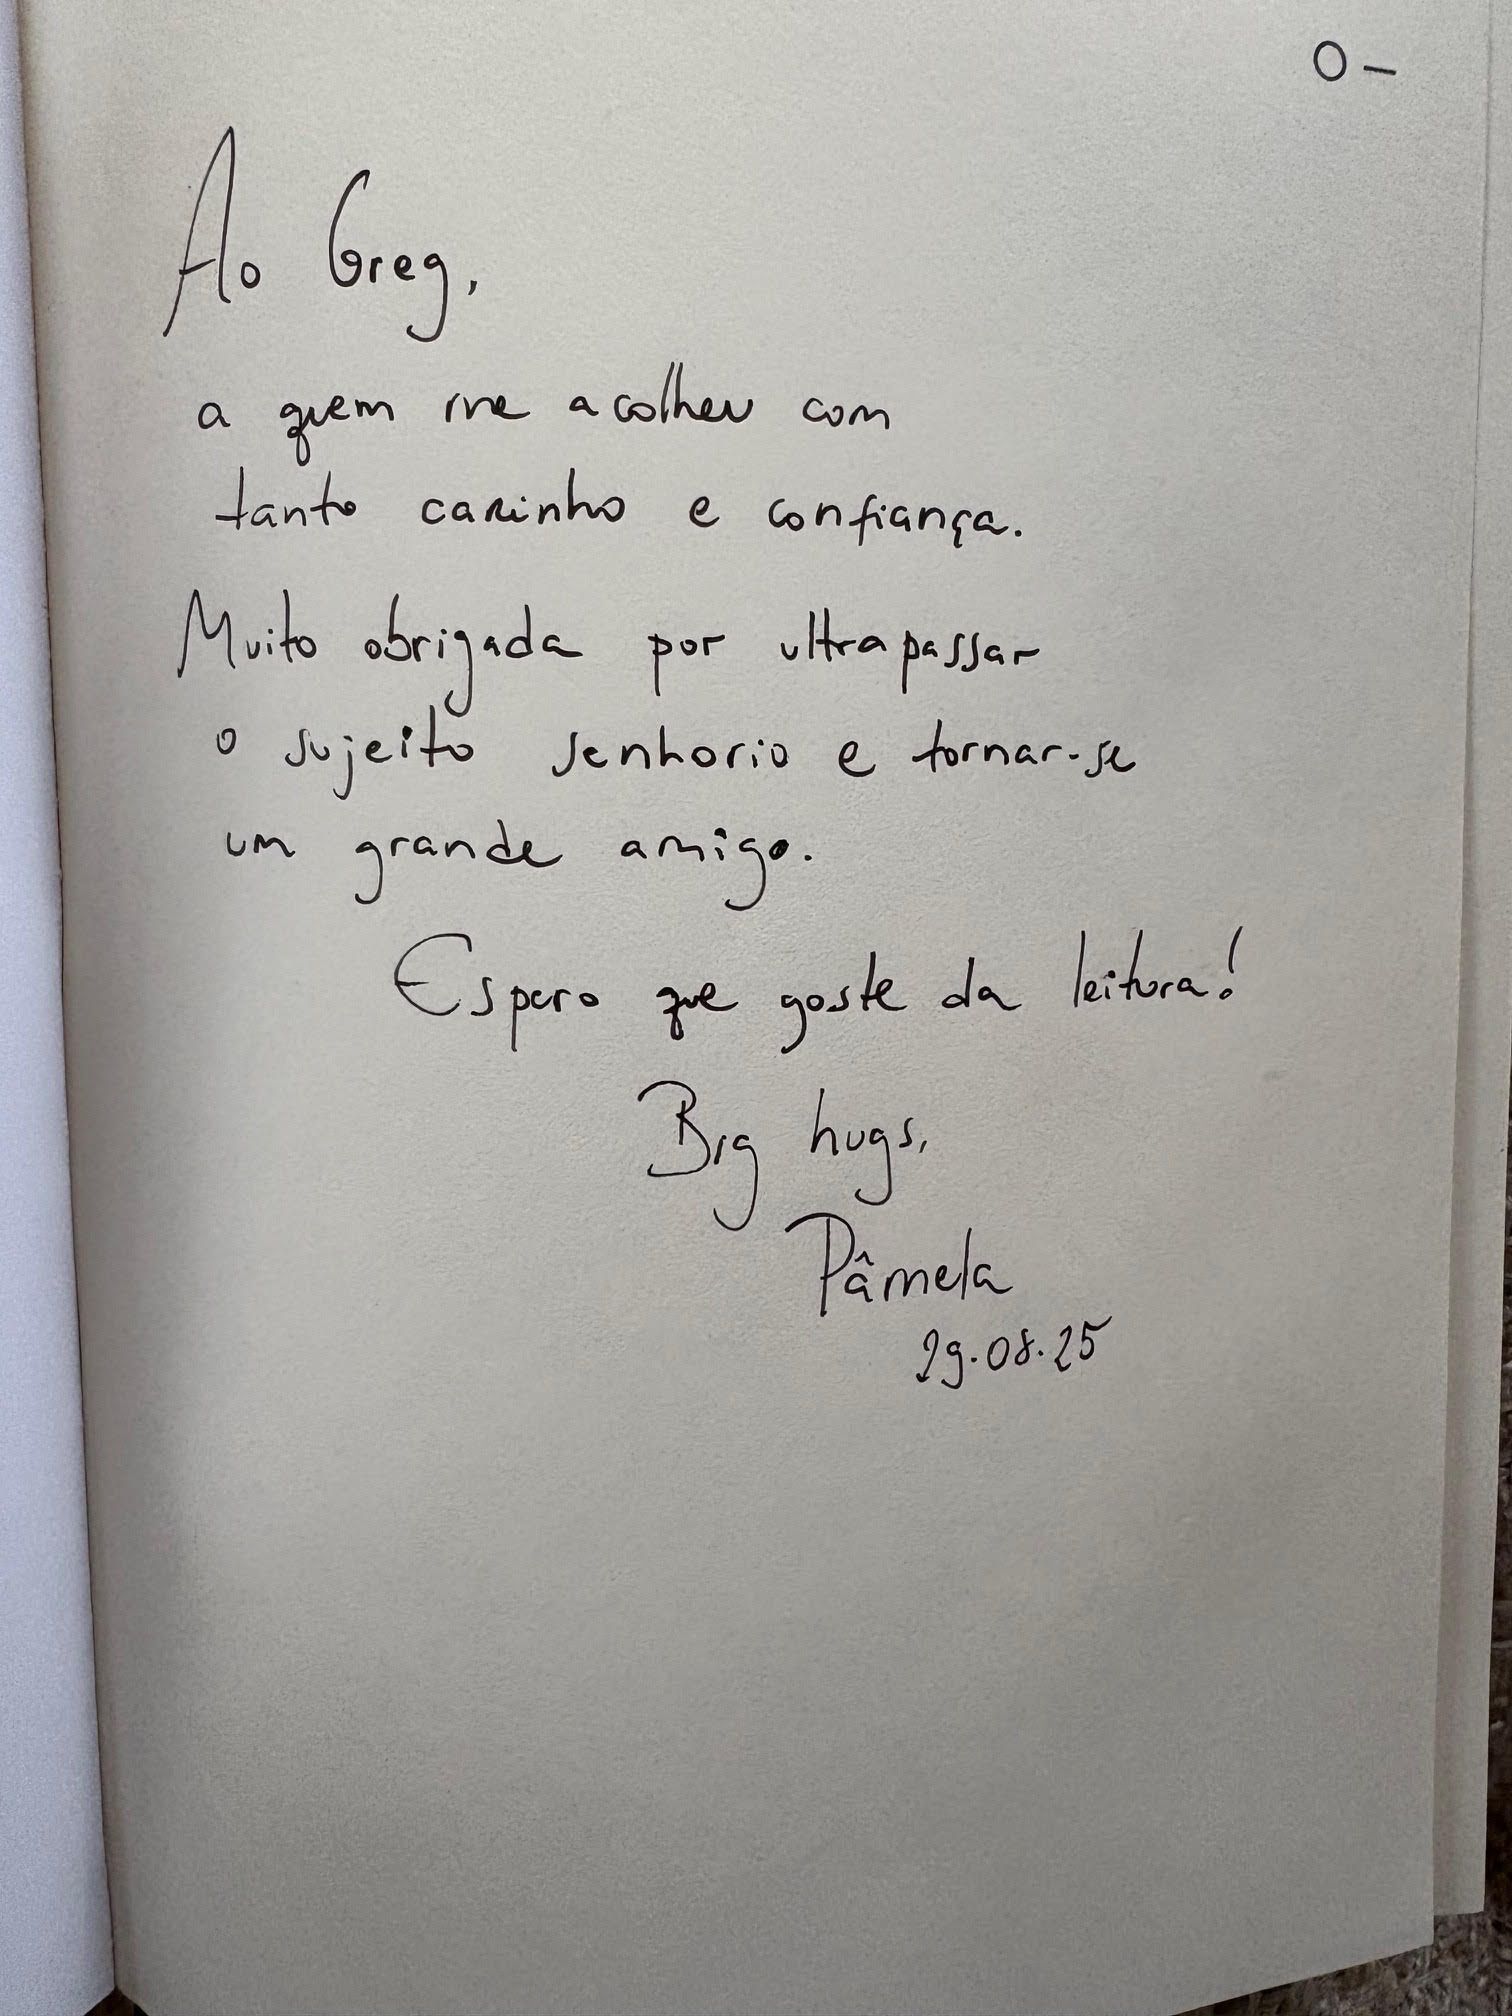 O –
Ao Greg,
a quem me acolheu com
tanto carinho e confiança.
Muito obrigada por ultrapassar
o sujeito senhorio e tornar-se
um grande amigo.
Espero que goste da leitura!
Big hugs,
Pâmela
29.08.25